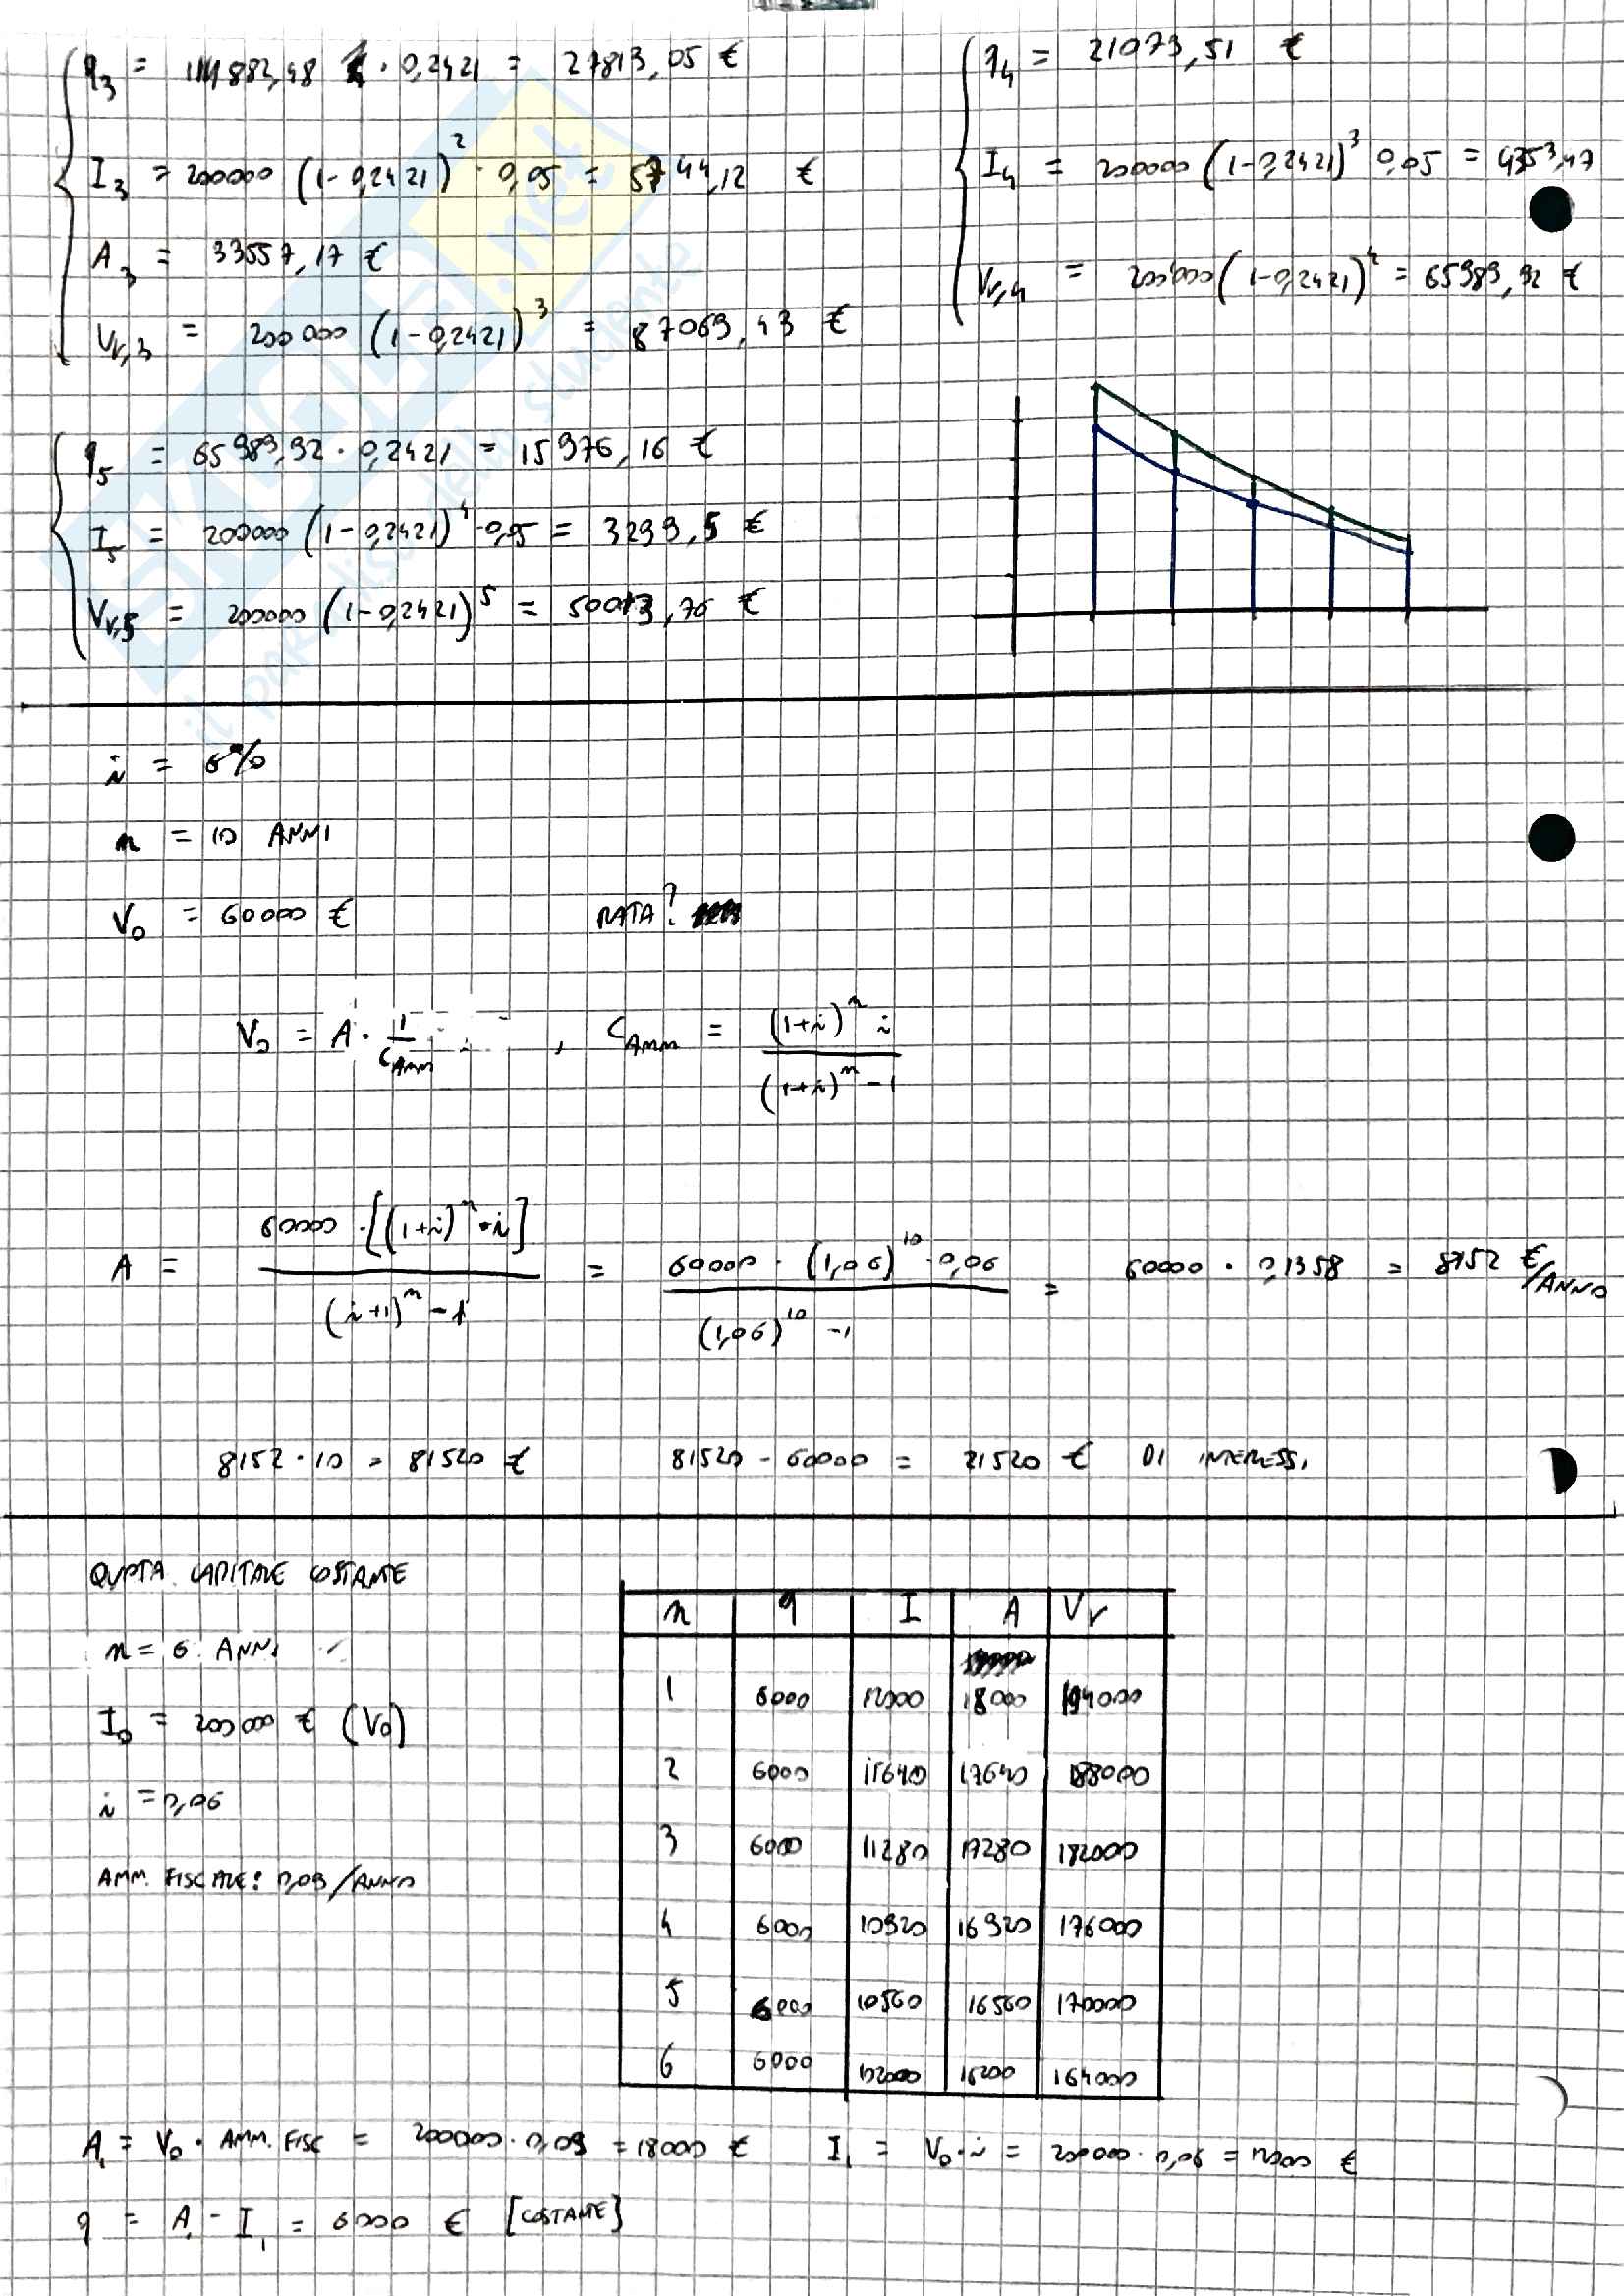 q3 = 114883,48 · 0,2421 = 27813,05 €
I3 = 200000 (1-0,2421)^2 · 0,05 = 5744,12 €
A3 = 33557,17 €
Vr,3 = 200 000 (1-0,2421)^3 = 87069,43 €
q4 = 21079,51 €
I4 = 200000 (1-0,2421)^3 0,05 = 4353,47
Vr,4 = 200000 (1-0,2421)^4 = 65989,92 €
q5 = 65989,92 · 0,2421 = 15976,16 €
I5 = 200000 (1-0,2421)^4 · 0,05 = 3299,5 €
Vr,5 = 200000 (1-0,2421)^5 = 50013,76 €
i = 6%
n = 10 ANNI
V0 = 60000 € RATA?
V0 = A · 1/CAmm , CAmm = (1+i)^n i / (1+i)^n - 1
A = 60000 · [(1+i)^n · i] / (i+1)^n - 1 = 60000 · (1,06)^10 · 0,06 / (1,06)^10 - 1 = 60000 · 0,1358 = 8152 €/ANNO
8152 · 10 = 81520 € 81520 - 60000 = 21520 € DI INTERESSI
QUOTA CAPITALE COSTANTE
n = 6 ANNI
I0 = 200000 € (V0)
i = 0,06
AMM. FISCALE: 0,09/ANNO
n q I A Vr
1 6000 12000 18000 194000
2 6000 11640 17640 188000
3 6000 11280 17280 182000
4 6000 10920 16920 176000
5 6000 10560 16560 170000
6 6000 10200 16200 164000
A1 = V0 · AMM. FISC = 200000 · 0,09 = 18000 € I1 = V0 · i = 200000 · 0,06 = 12000 €
q = A1 - I1 = 6000 € [COSTANTE]
SKUOLA.net
il paradiso dello studente